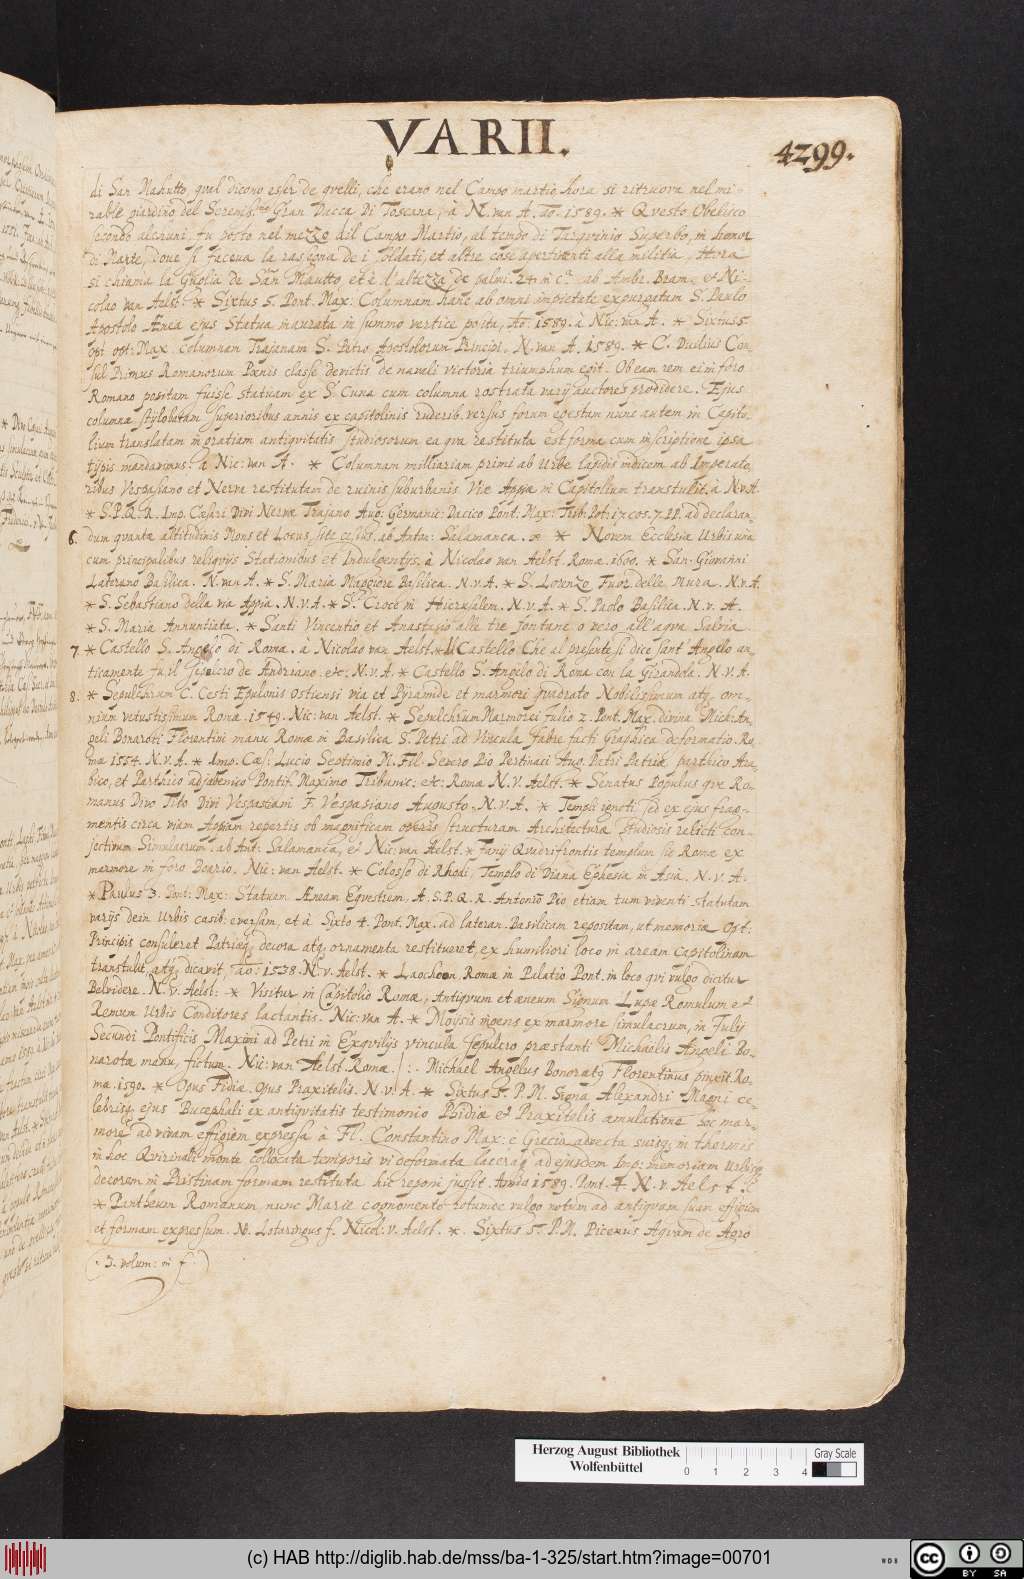 VARII.
4299.
di San Mahutto, qual dicono esser de quelli, che erano nel Campo martio hora si ritruova nel mi-
rabile giardino del Serenis.mo Gran Ducca Di Toscana, à N. van A. ao. 1589. * Questo Obelisco
secondo alchuni, fu posto nel mezzo dil Campo Martio, al tempo di Tarqvinio Superbo, in honor
di Marte, doue si faceua la rasegna de i soldati, et altre cose apertinenti alla militia, Hora
si chiama la Guolia de San Mautto, et è l'altezza de palmi. 24 ab Ambr. Bram. & Ni-
colao van Aelst. * Sixtus 5. Pont. Max. Columnam hanc ab omni impietate expurgatam S. Paulo
Apostolo Ænea ejus Statua inaurata in summo vertice posita, Ao. 1589. à Nic: van A. * Sixtus 5.
opt: Max. columnam Trajanam S. Petro Apostolorum Principi. N. van A. 1589. * C. Duilius Con-
sul Primus Romanorum Pœnis classe devictis de navali victoria triumphum egit. Ob eam rem ei in foro
Romano positam fuisse statuam ex S. Cuna cum columna rostrata varij auctores prodidere. Ejus
columnæ stylobatam superioribus annis ex capitolinis ruderib. versus forum egestam nunc autem in Capito-
lium translatam in gratiam antiqvitatis studiosorum ea qva restituta est forma cum inscriptione ipsa
typis mandavimus. à Nic: van A. * Columnam milliariam primi ab Urbe lapidis indicem ab Imperato-
ribus Vespasiano et Nerva restitutam de ruinis suburbanis Viæ Appiæ in Capitolium transtulit. à N.v.A.
* S.P.Q.R. Imp. Cæsari Divi Nervæ Trajano Aug: Germanic: Dacico Pont. Max: Trib. Pot: 17 cos. 7. PP. ad declaran-
6. dum quantæ altitudinis Mons et Locus, ab Anton: Salamanca. * Novem Ecclesiæ Urbis una
cum principalibus reliqvijs Stationibus et Indulgentijs. à Nicolao van Aelst. Romæ. 1600. * San. Giovanni
Laterano Basilica. N. van A. * S. Maria Maggiore Basilica. N.v.A. * S. Lorenzo Fuor delle mura. N.v.A.
* S. Sebastiano della via Appia. N.v.A. * S. Croce in Hierusalem. N.v.A. * S. Paolo Basilica. N.v. A.
* S. Maria Annuntiata. * Santi Vincentio et Anastasio alle tre fontane o vero all'aqva Salvia.
7. * Castello S. Angelo di Roma. à Nicolao van Aelst. * Il Castello Che al presente si dice Sant' Angelo an-
ticamente fu il sepolcro de Andriano. etc: N.v.A. * Castello S. Angelo di Roma con la Girandola. N.v.A.
8. * Sepulchrum C. Cesti Epulonis Ostiensi via et Pyramide et marmori quadrato Nobilissimum atq. om-
nium vetustissimum Romæ. 1549. Nic: van Aelst. * Sepulchrum Marmorei Julio 2. Pont. Max. divina Mich: An-
geli Bonaroti Florentini manu Romæ in Basilica S. Petri ad Vincula fabre facti Graphica deformatio. Ro-
mæ 1554. N.v.A. * Imp. Cæs. Lucio Septimio M. Fil. Severo Pio Pertinaci Aug. Patri Patriæ parthico Ara-
bico, et Parthico adjabenico Pontif. Maximo Tribunic. etc: Romæ N.V. Aelst. * Senatus Populus qve Ro-
manus Divo Tito Divi Vespasiani F. Vespasiano Augusto. N.v.A. * Templi ignoti sed ex ejus frag-
mentis circa viam Appiam repertis ob magnificam operis structuram Architecturæ studiosis relicti con-
jectivum Simulacrum: ab Ant: Salamanca, et Nic: van Aelst. * Fanij Qvadrifrontis templum sic Romæ ex
marmore in foro Boario. Nic: van Aelst. * Colosso di Rhodi, Templo di Diana Ephesia in Asia. N.v.A.
* Paulus 3. Pont: Max: Statuam Æneam Eqvestrem, A. S.P.Q.R. Antonio Pio etiam tum viventi statutam
varijs dein Urbis casib: eversam, et à Sixto 4. Pont. Max. ad lateran. Basilicam repositam, ut memoriæ Opt:
Principis consuleret Patriæq. decora atq. ornamenta restitueret, ex humiliori loco in aream capitolinam
transtulit, atq. dicavit, ao: 1538. N.v. Aelst. * Laocheon, Romæ in Palatio Pont. in loco qvi vulgo dicitur
Belvidere. N.v. Aelst. * Visitur in Capitolio Romæ, Antiqvum et æneum Signum Lupæ Romulum et
Remum Urbis Conditores lactantis. Nic: van A. * Moysis ingens ex marmore simulacrum, in Julij
Secundi Pontificis Maximi ad Petri in Exqvilijs vincula sepulcro præstanti Michaelis Angeli Bo-
narotæ manu, fictum. Nic: van Aelst. Romæ. : Michael Angelus Bonoratq Florentinus pinxit. Ro-
mæ. 1590. * Opus Fidiæ. Opus Praxitelis. N.v.A. * Sixtus 5. P.M. Signa Alexandri Magni ce-
lebrisq. ejus Bucephali ex antiqvitatis testimonio Phidiæ et Praxitelis æmulatione hoc mar-
more ad vivam effigiem expressa à Fl. Constantino Max: e Grecia advecta suisq. in thermis
in hoc Qvirinali monte collocata temporis vi deformata laceraq. ad ejusdem Imp: memoriam Urbisq.
decorem in Pristinam formam restituta hic reponi jussit. Anno 1589. Pont. 4. N.v. Aelst.
* Pantheum Romanum nunc Mariæ cognomento rotundæ vulgo notum ad antiqvam suam effigiem
et formam expressum. Nb. Lotaringus f. Nicol. v. Aelst. * Sixtus 5. P.M. Picenus Aqvam de Agro
(. 3. volum: in f.)
Herzog August Bibliothek
Wolfenbüttel
0 1 2 3 4
Gray Scale
(c) HAB http://diglib.hab.de/mss/ba-1-325/start.htm?image=00701
WDB
cc BY SA